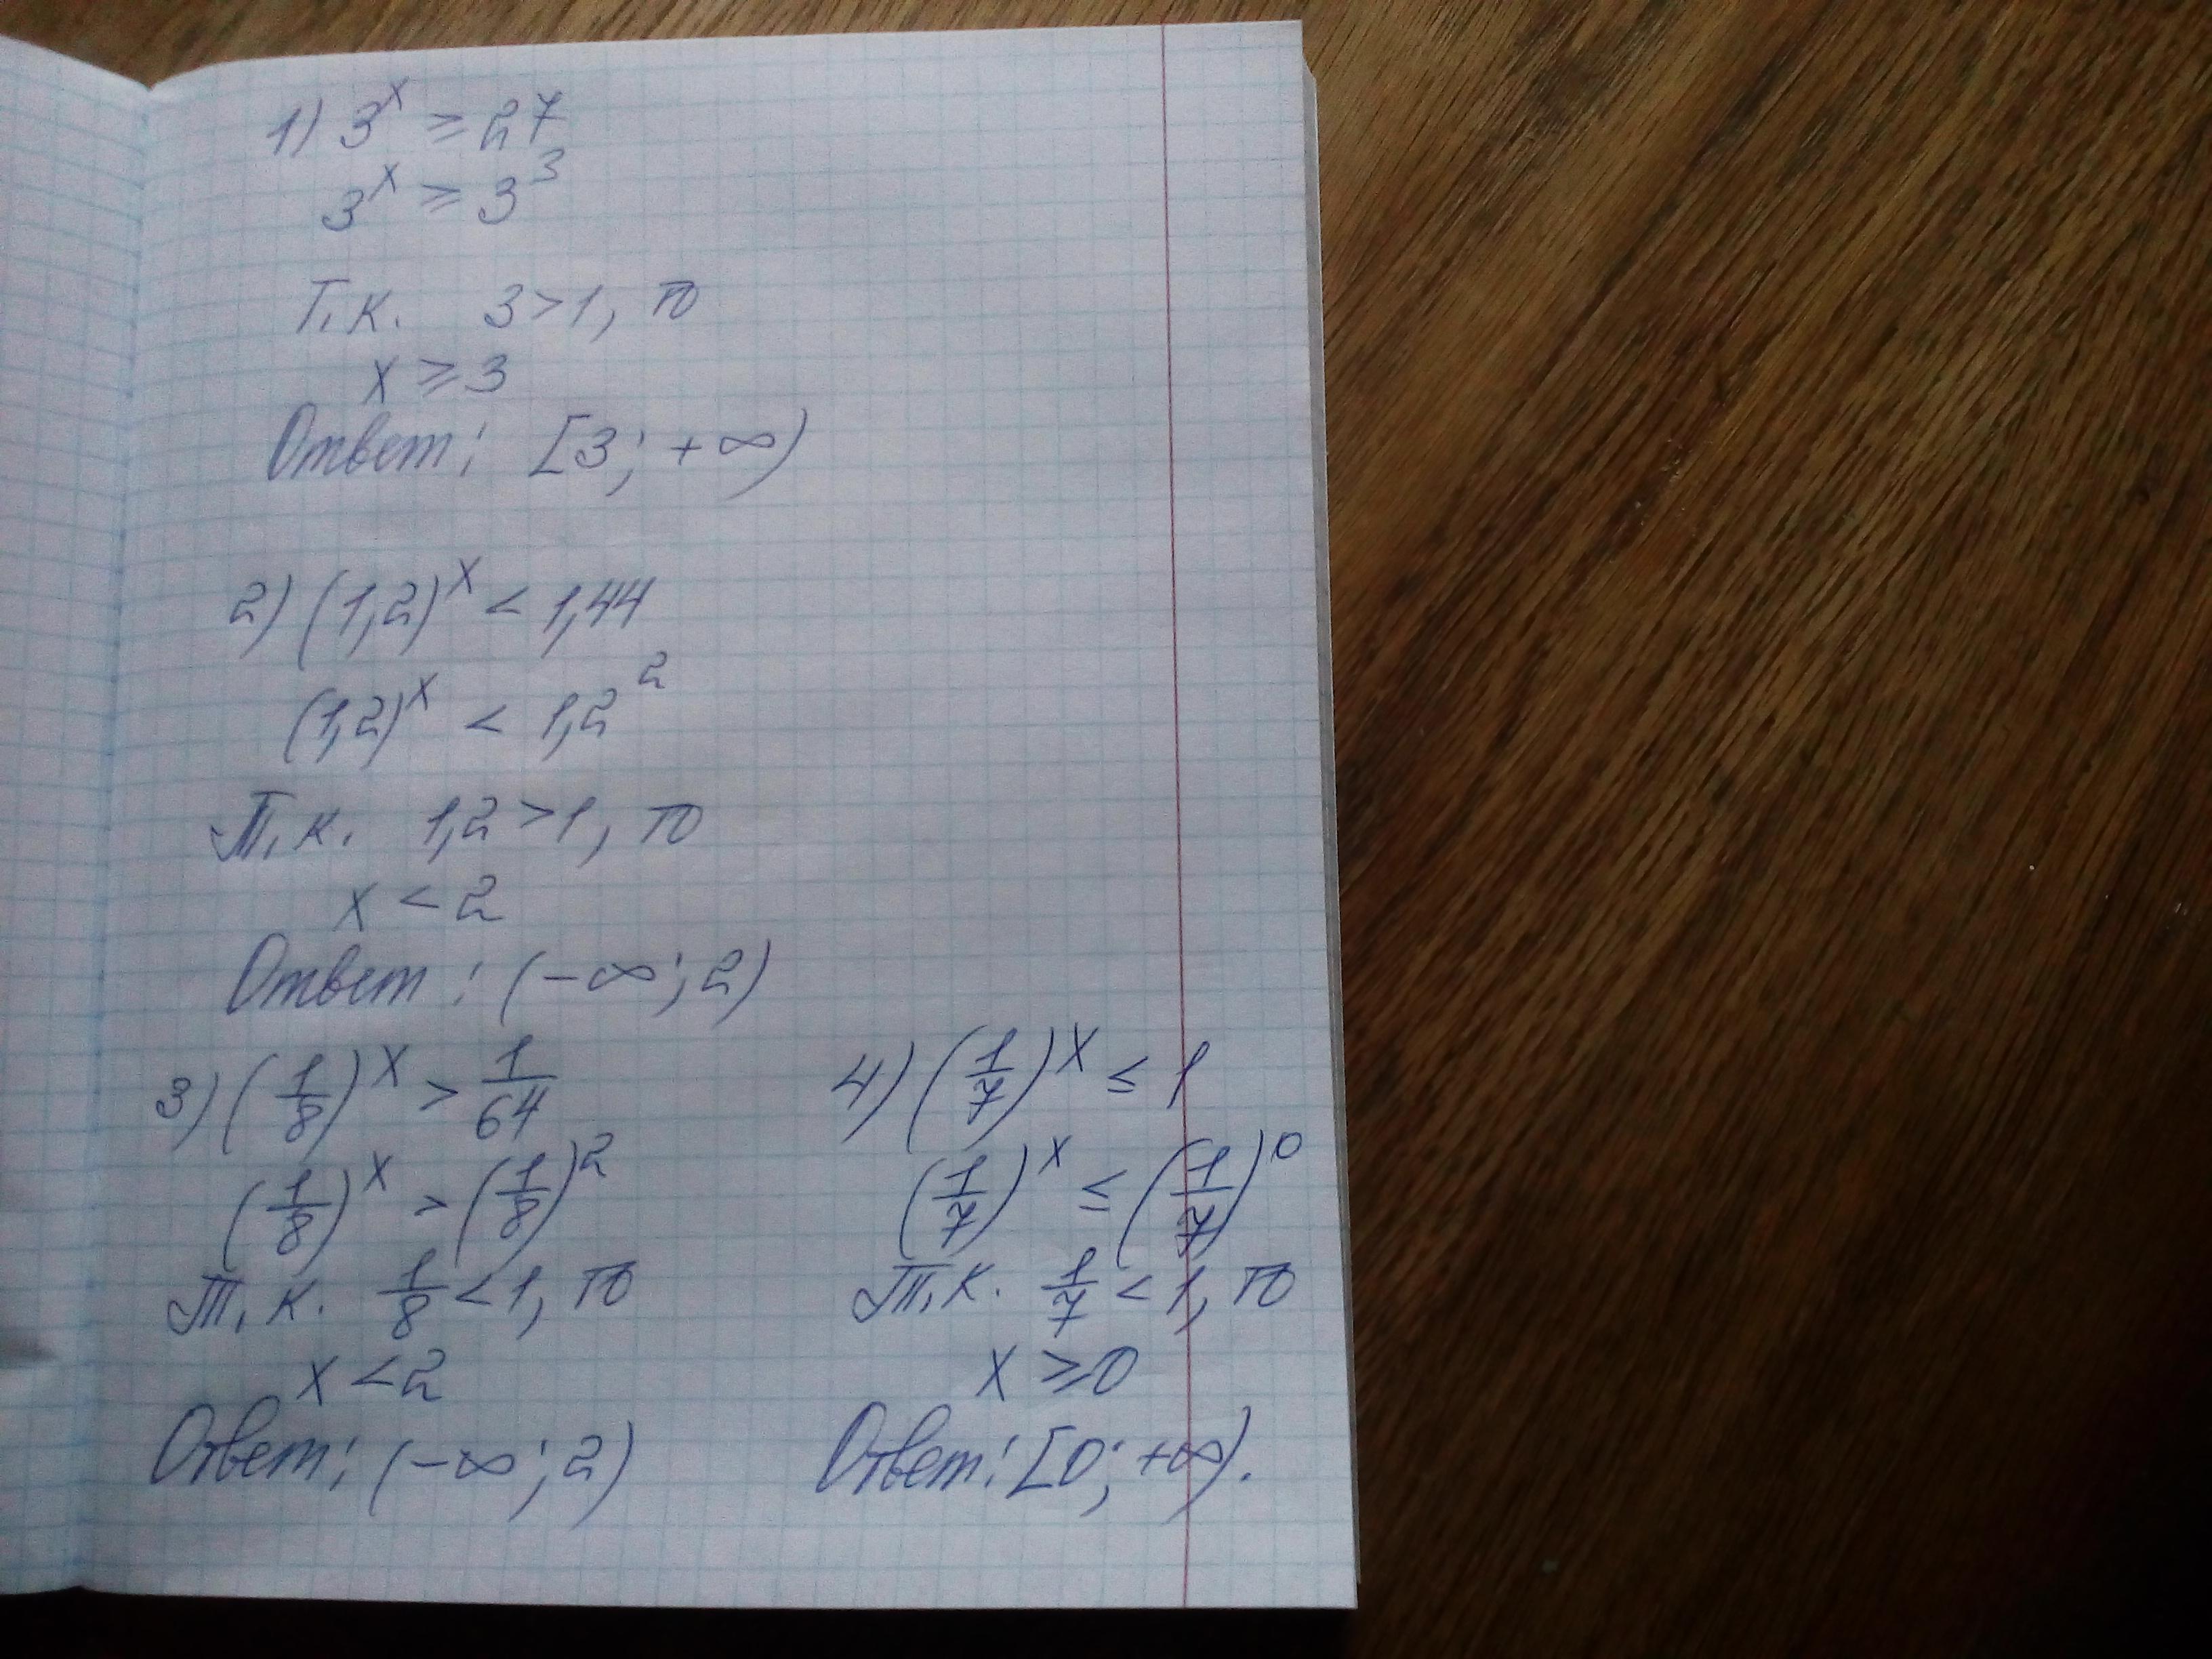 1) 3^x ≥ 27
3^x ≥ 3^3
Т.к. 3>1, то
x ≥ 3
Ответ: [3; +∞)
2) (1,2)^x < 1,44
(1,2)^x < 1,2^2
Т.к. 1,2 >1, то
x < 2
Ответ: (-∞; 2)
3) (1/8)^x > 1/64
(1/8)^x > (1/8)^2
Т.к. 1/8 < 1, то
x < 2
Ответ: (-∞; 2)
4) (1/7)^x ≤ 1
(1/7)^x ≤ (1/7)^0
Т.к. 1/7 < 1, то
x ≥ 0
Ответ: [0; +∞).